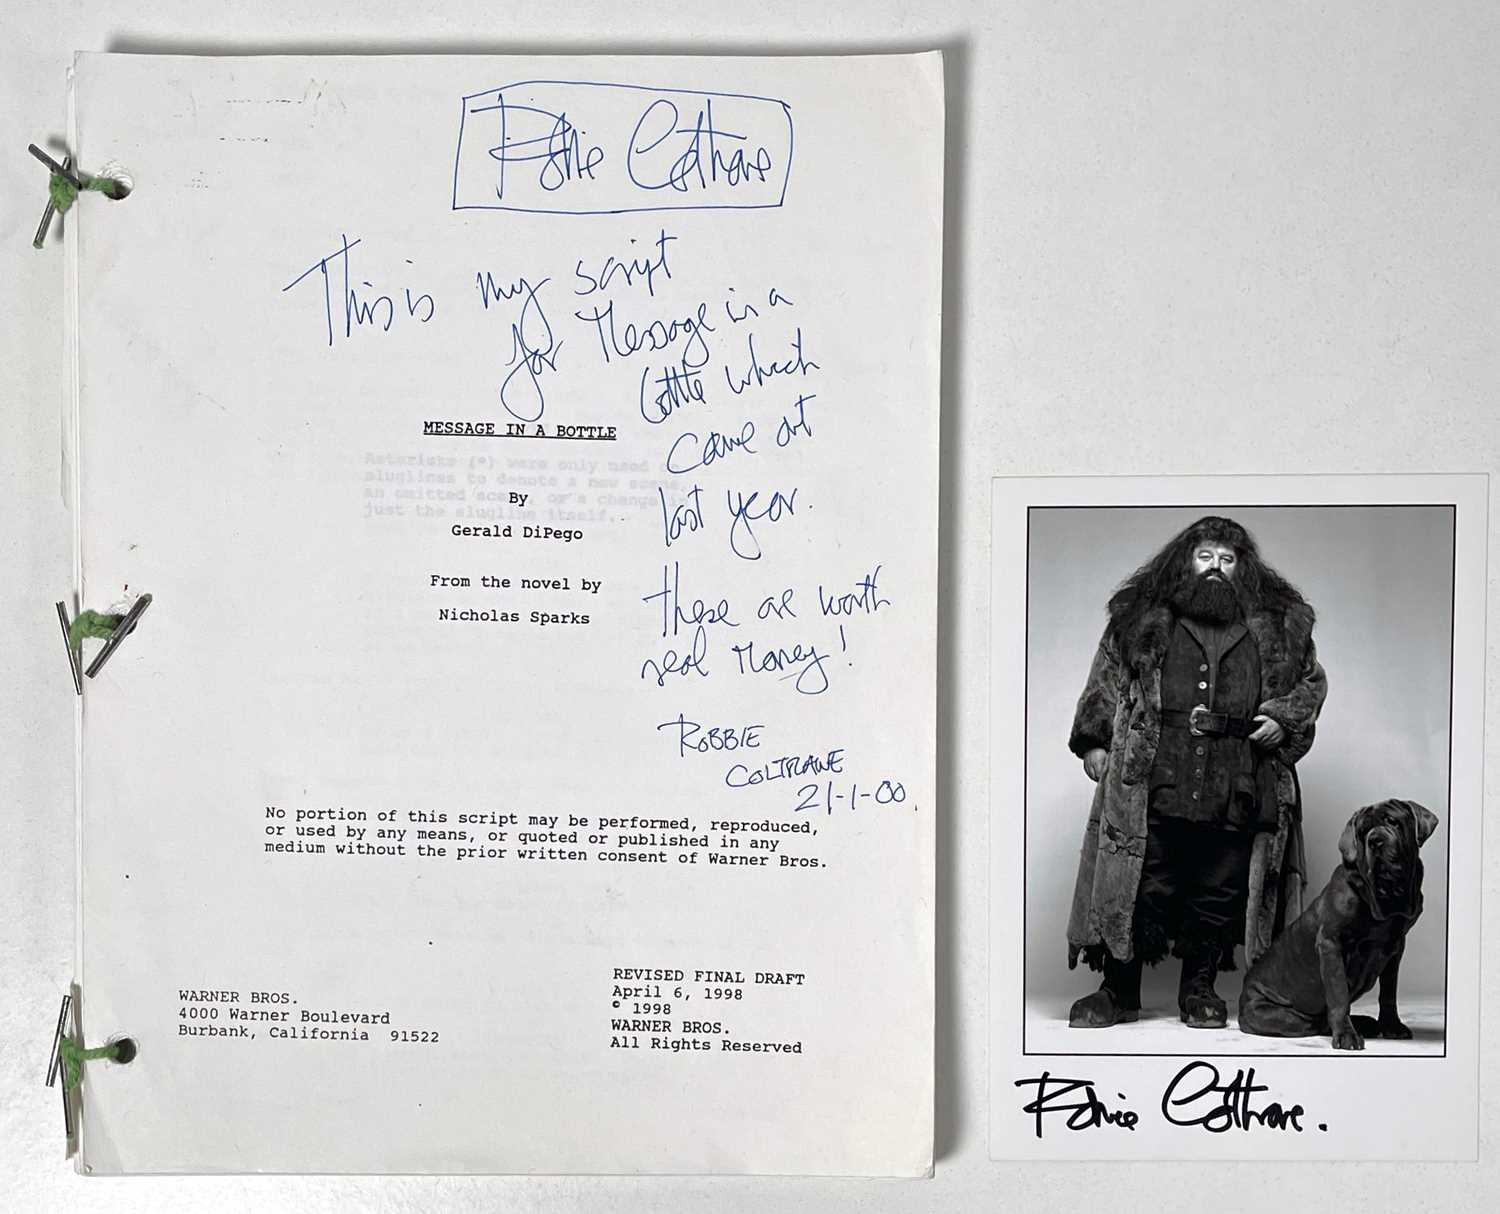 Robbie Coltrane
This is my script
for Message in a
bottle which
came out
last year.
these are worth
real money!
ROBBIE
COLTRANE
21-1-00
MESSAGE IN A BOTTLE
Asterisks (*) were only used
sluglines to denote a new scene,
an omitted scene, or a change in
just the slugline itself.
By
Gerald DiPego
From the novel by
Nicholas Sparks
No portion of this script may be performed, reproduced,
or used by any means, or quoted or published in any
medium without the prior written consent of Warner Bros.
WARNER BROS.
4000 Warner Boulevard
Burbank, California 91522
REVISED FINAL DRAFT
April 6, 1998
© 1998
WARNER BROS.
All Rights Reserved
Robbie Coltrane.